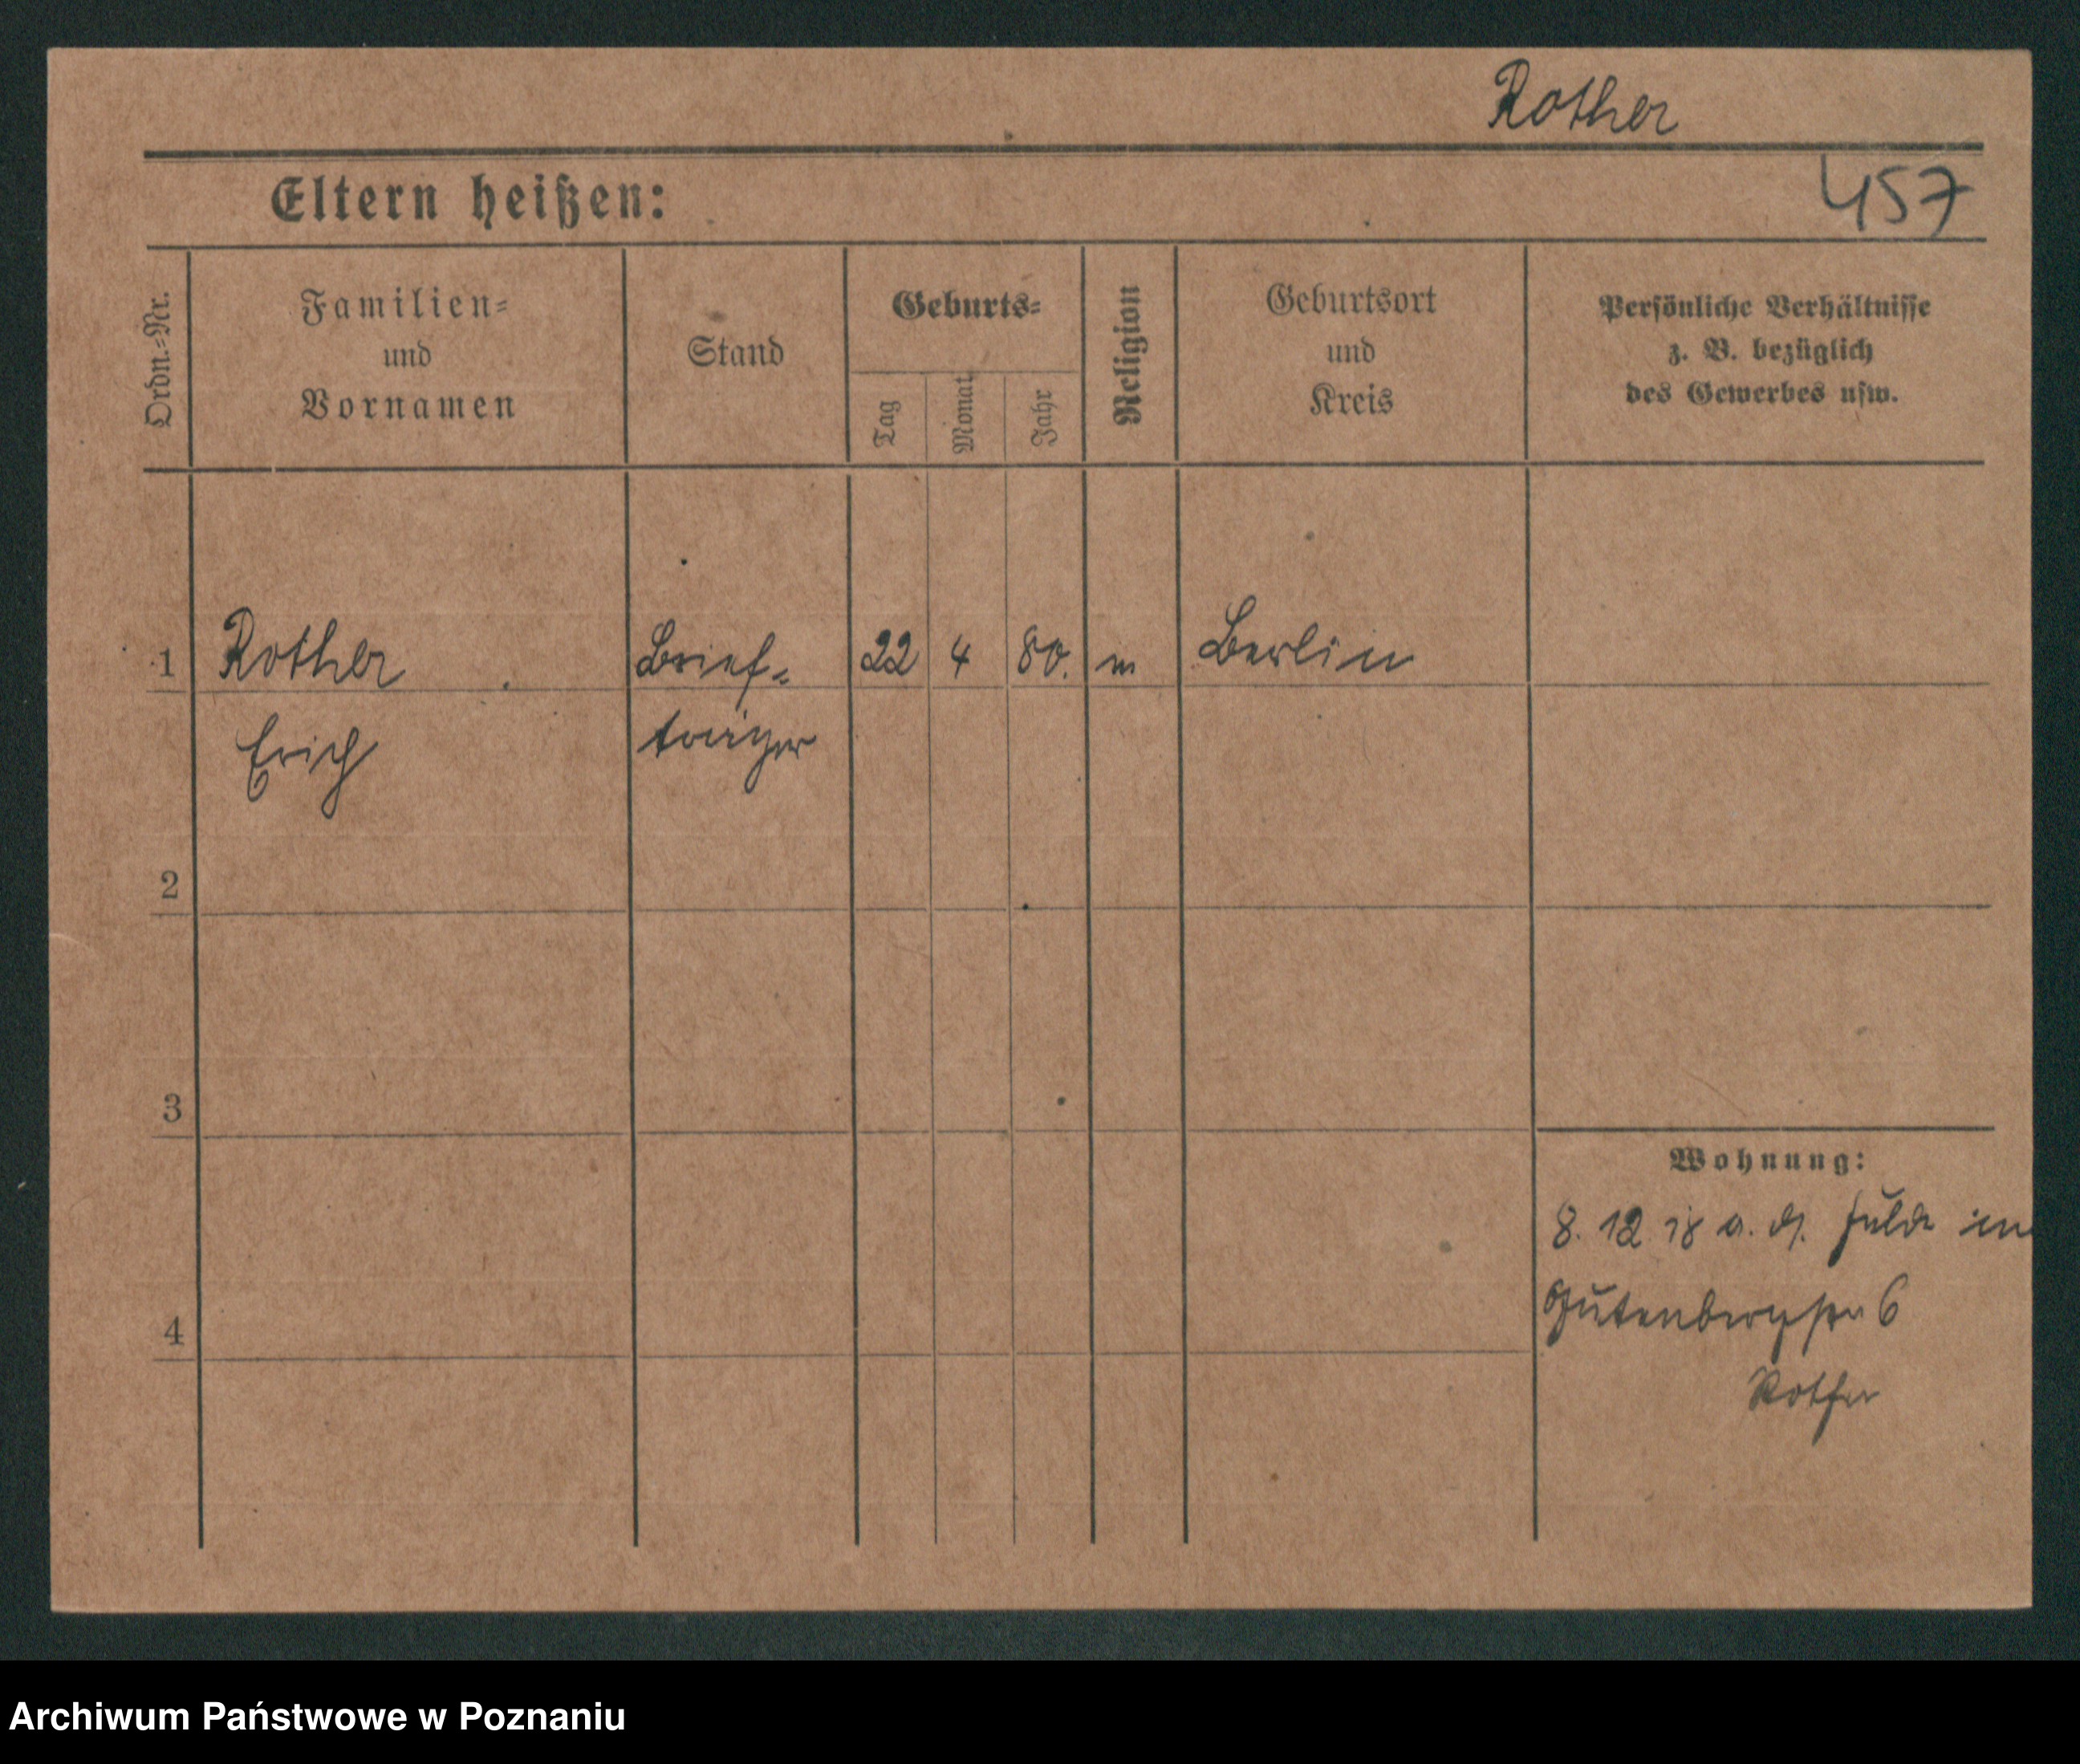 Rother
457
Eltern heißen:
Ordn.-Nr.
Familien-
und
Vornamen
Stand
Geburts-
Tag
Monat
Jahr
Religion
Geburtsort
und
Kreis
Persönliche Verhältnisse
z. B. bezüglich
des Gewerbes usw.
1 Rother Brief- 22 4 80. Berlin
Erich träger
2
3
4
Wohnung:
8. 12 18 a. d. Felde in
Gutenbergstr 6
Rother
Archiwum Państwowe w Poznaniu